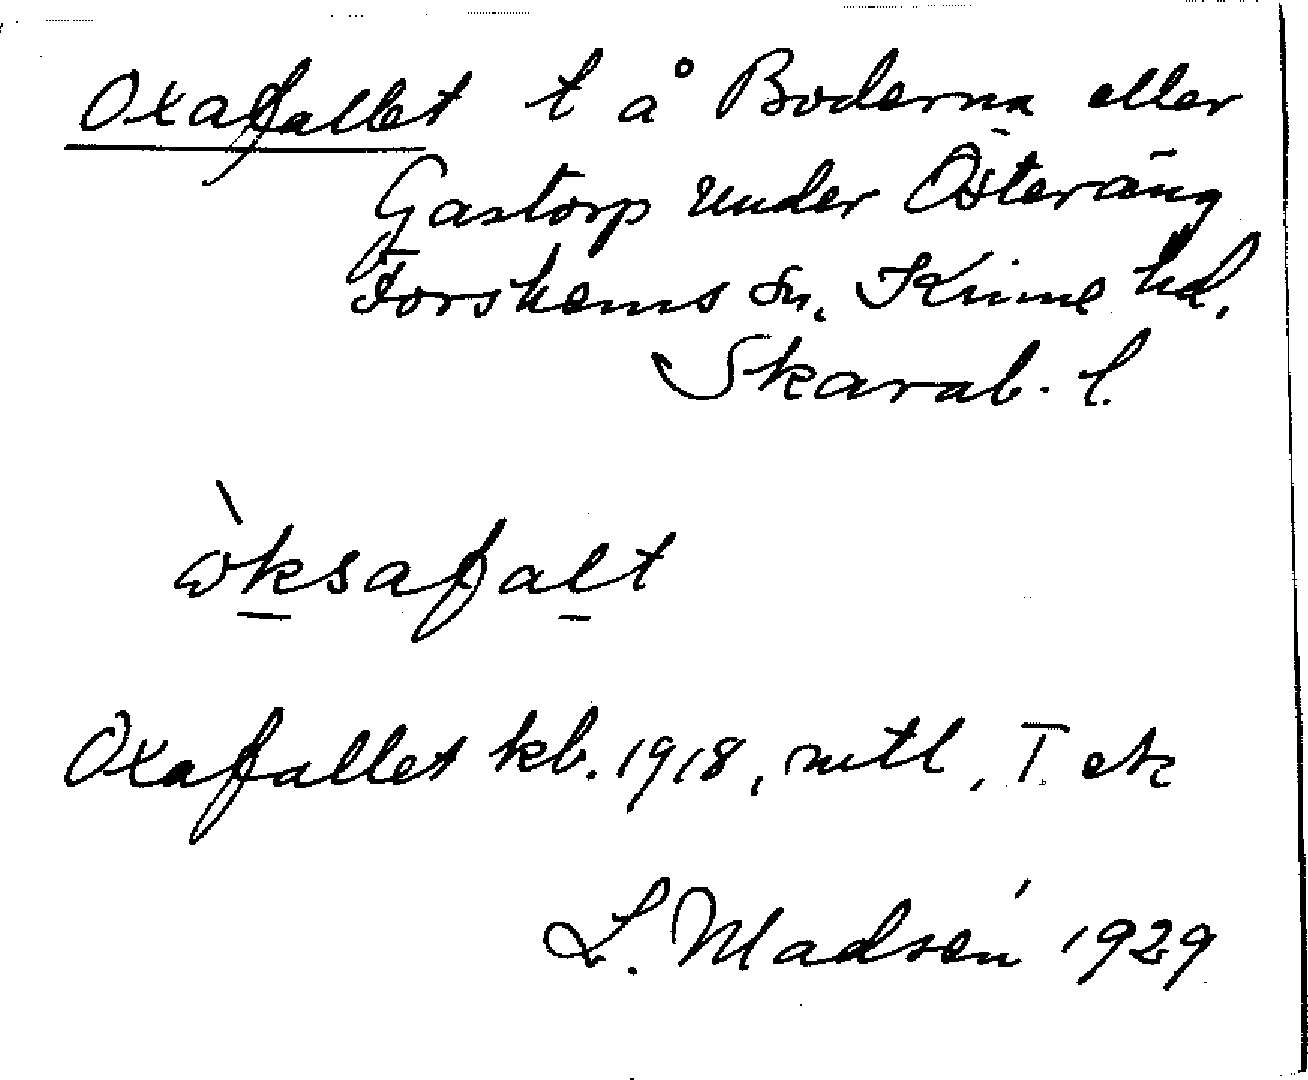 Oxafallet t å Boderna eller
Gastorp under Österäng
Forshems sn, Kinne hd,
Skarab. l.
ὼksafalt
Oxafallet kb. 1918, mtl, T. ek
L. Madsén 1929